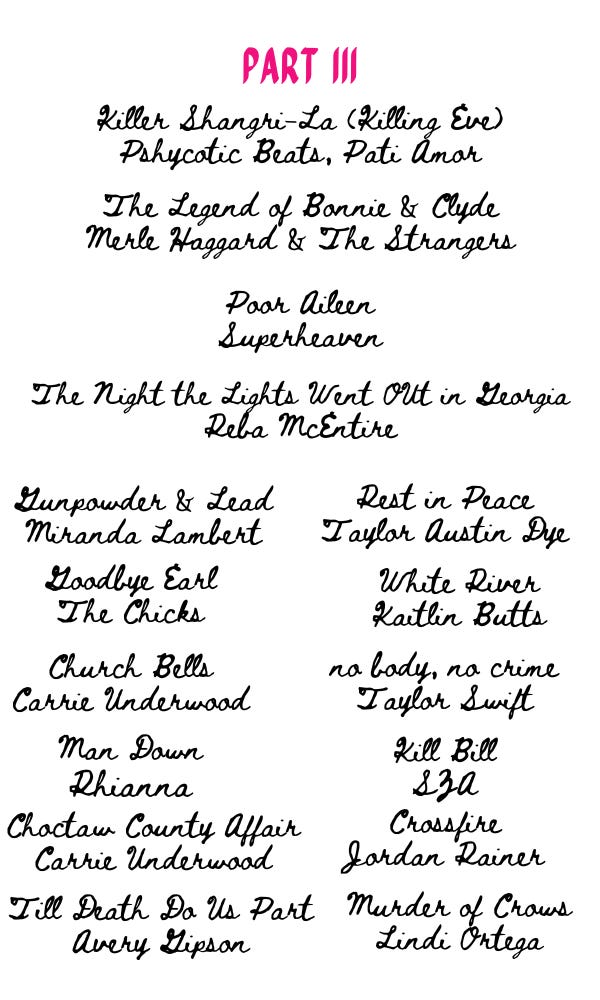 PART III
Killer Shangri-La (Killing Eve)
Pshycotic Beats, Pati Amor
The Legend of Bonnie & Clyde
Merle Haggard & The Strangers
Poor Aileen
Superheaven
The Night the Lights Went OUt in Georgia
Reba McEntire
Gunpowder & Lead
Miranda Lambert
Goodbye Earl
The Chicks
Church Bells
Carrie Underwood
Man Down
Rhianna
Choctaw County Affair
Carrie Underwood
Till Death Do Us Part
Avery Gipson
Rest in Peace
Taylor Austin Dye
White River
Kaitlin Butts
no body, no crime
Taylor Swift
Kill Bill
SZA
Crossfire
Jordan Rainer
Murder of Crows
Lindi Ortega